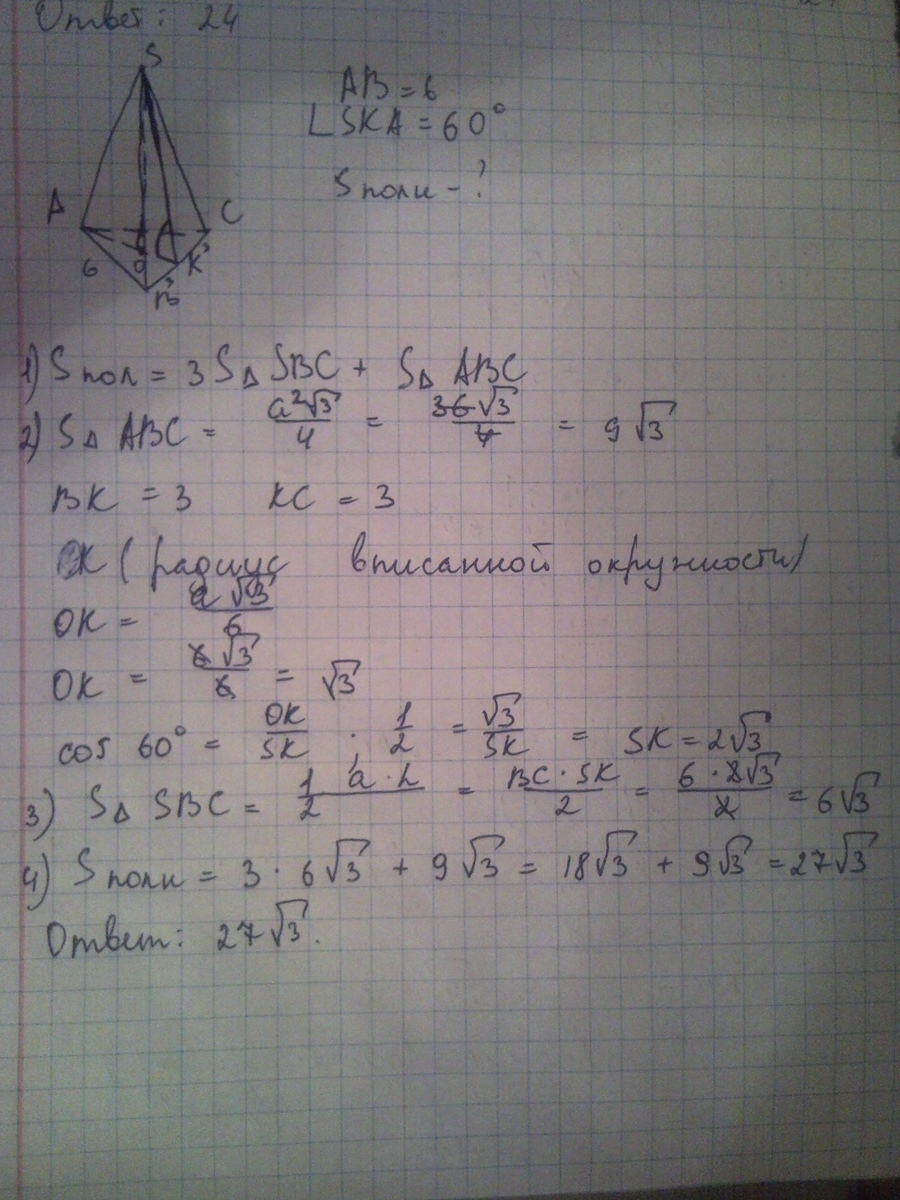 Ответ: 24
S
AB = 6
∟SKA = 60°
Sполн - ?
A
C
6
O
K
3
3
B
1) Sпол = 3 S△ SBC + S△ ABC
2) S△ ABC = a²√3/4 = 36√3/4 = 9√3
BK = 3 KC = 3
OK (радиус вписанной окружности)
OK = a√3/6
OK = 6√3/6 = √3
cos 60° = OK/SK ; 1/2 = √3/SK = SK = 2√3
3) S△ SBC = 1/2 a · h = BC · SK/2 = 6 · 2√3/2 = 6√3
4) Sполн = 3 · 6√3 + 9√3 = 18√3 + 9√3 = 27√3
Ответ: 27√3.